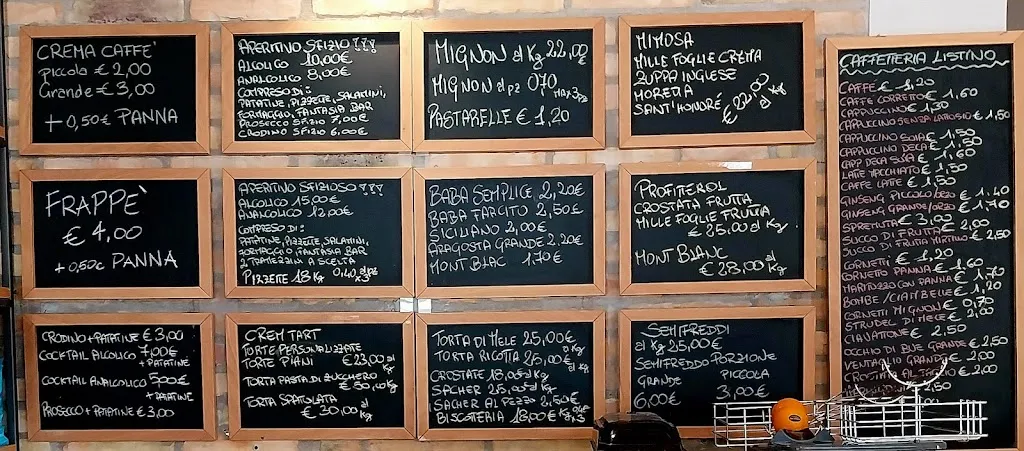 CREMA CAFFE'
piccola € 2,00
Grande € 3,00
+ 0,50€ PANNA
APERITIVO SFIZIO !!!
ALCOLICO 10,00€
ANALCOLICO 8,00€
COMPRESO DI:
PATATINE, PIZZETTE, SALATINI,
FORMAGGIO, FANTASIA BAR
PROSECCO SFIZIO 7,00€
CRODINO SFIZIO 6,00€
MIGNON al Kg 22,00€
MIGNON al pz 0,70 MAX 3 pz
PASTARELLE € 1,20
MIMOSA
MILLE FOGLIE CREMA
ZUPPA INGLESE
MORETTA
SANT'HONORÉ € 22,00 al Kg
FRAPPE'
€ 4,00
+ 0,50€ PANNA
APERITIVO SFIZIOSO !!!
ALCOLICO 15,00€
ANALCOLICO 12,00€
COMPRESO DI:
PATATINE, PIZZETTE, SALATINI,
FORMAGGIO, FANTASIA BAR
2 TRAMEZZINI A SCELTA
PIZZETTE 18 Kg 0,40
BABA SEMPLICE 2,20€
BABA FARCITO 2,50€
SICILIANO 2,00€
ARAGOSTA GRANDE 2.20€
MONT BLAC 1.70€
PROFITEROL
CROSTATA FRUTTA
MILLE FOGLIE FRUTTA
€ 25,00 al Kg
MONT BLANC
€ 28,00 al Kg
CRODINO + PATATINE € 3,00
COCKTAIL ALCOLICO 7,00€
+ PATATINE
COCKTAIL ANALCOLICO 5,00€
+ PATATINE
PROSECCO + PATATINE € 3,00
CREM TART
TORTE PERSONALIZZATE
TORTE PIANI € 23,00 al Kg
TORTA PASTA DI ZUCCHERO
€ 30,00 al Kg
TORTA SPATOLATA
€ 30,00 al Kg
TORTA DI MELE 25,00€ al Kg
TORTA RICOTTA 25,00€ al Kg
CROSTATE 18,00€ al Kg
SACHER 25,00 al Kg
SACHER AL PEZZO 2,50€
BISCOTTERIA 18,00€ Kg
SEMIFREDDI
al Kg 25,00€
SEMIFREDDO PORZIONE
GRANDE PICCOLA
6,00€ 3,00€
CAFFETTERIA LISTINO
CAFFE € 1,20
CAFFE CORRETTO € 1,60
CAPPUCCINO € 1,30
CAPPUCCINO SENZA LATTOSIO € 1,50
CAPPUCCINO SOIA € 1,50
CAPPUCCINO DECA € 1,50
CAPP DECA SOIA € 1,60
LATTE MACCHIATO € 1,50
CAFFE LATTE € 1,50
GINSENG PICCOLO/ORZO € 1,40
GINSENG GRANDE/ORZO € 1,70
SPREMUTA € 3,02
SUCCO DI FRUTTA € 2,00
SUCCO DI FRUTTA MIRTILLO € 2,50
CORNETTI € 1,20
CORNETTO PANNA € 1,60
MARITOZZO CON PANNA € 1,70
BOMBE / CIAMBELLE € 1,20
CORNETTI MIGNON € 0,70
STRUDEL DI MELE € 2,00
CIAVATTONE € 2,50
OCCHIO DI BUE GRANDE € 2,50
VENTAGLIO GRANDE € 2,00
€ 2,00
2,50